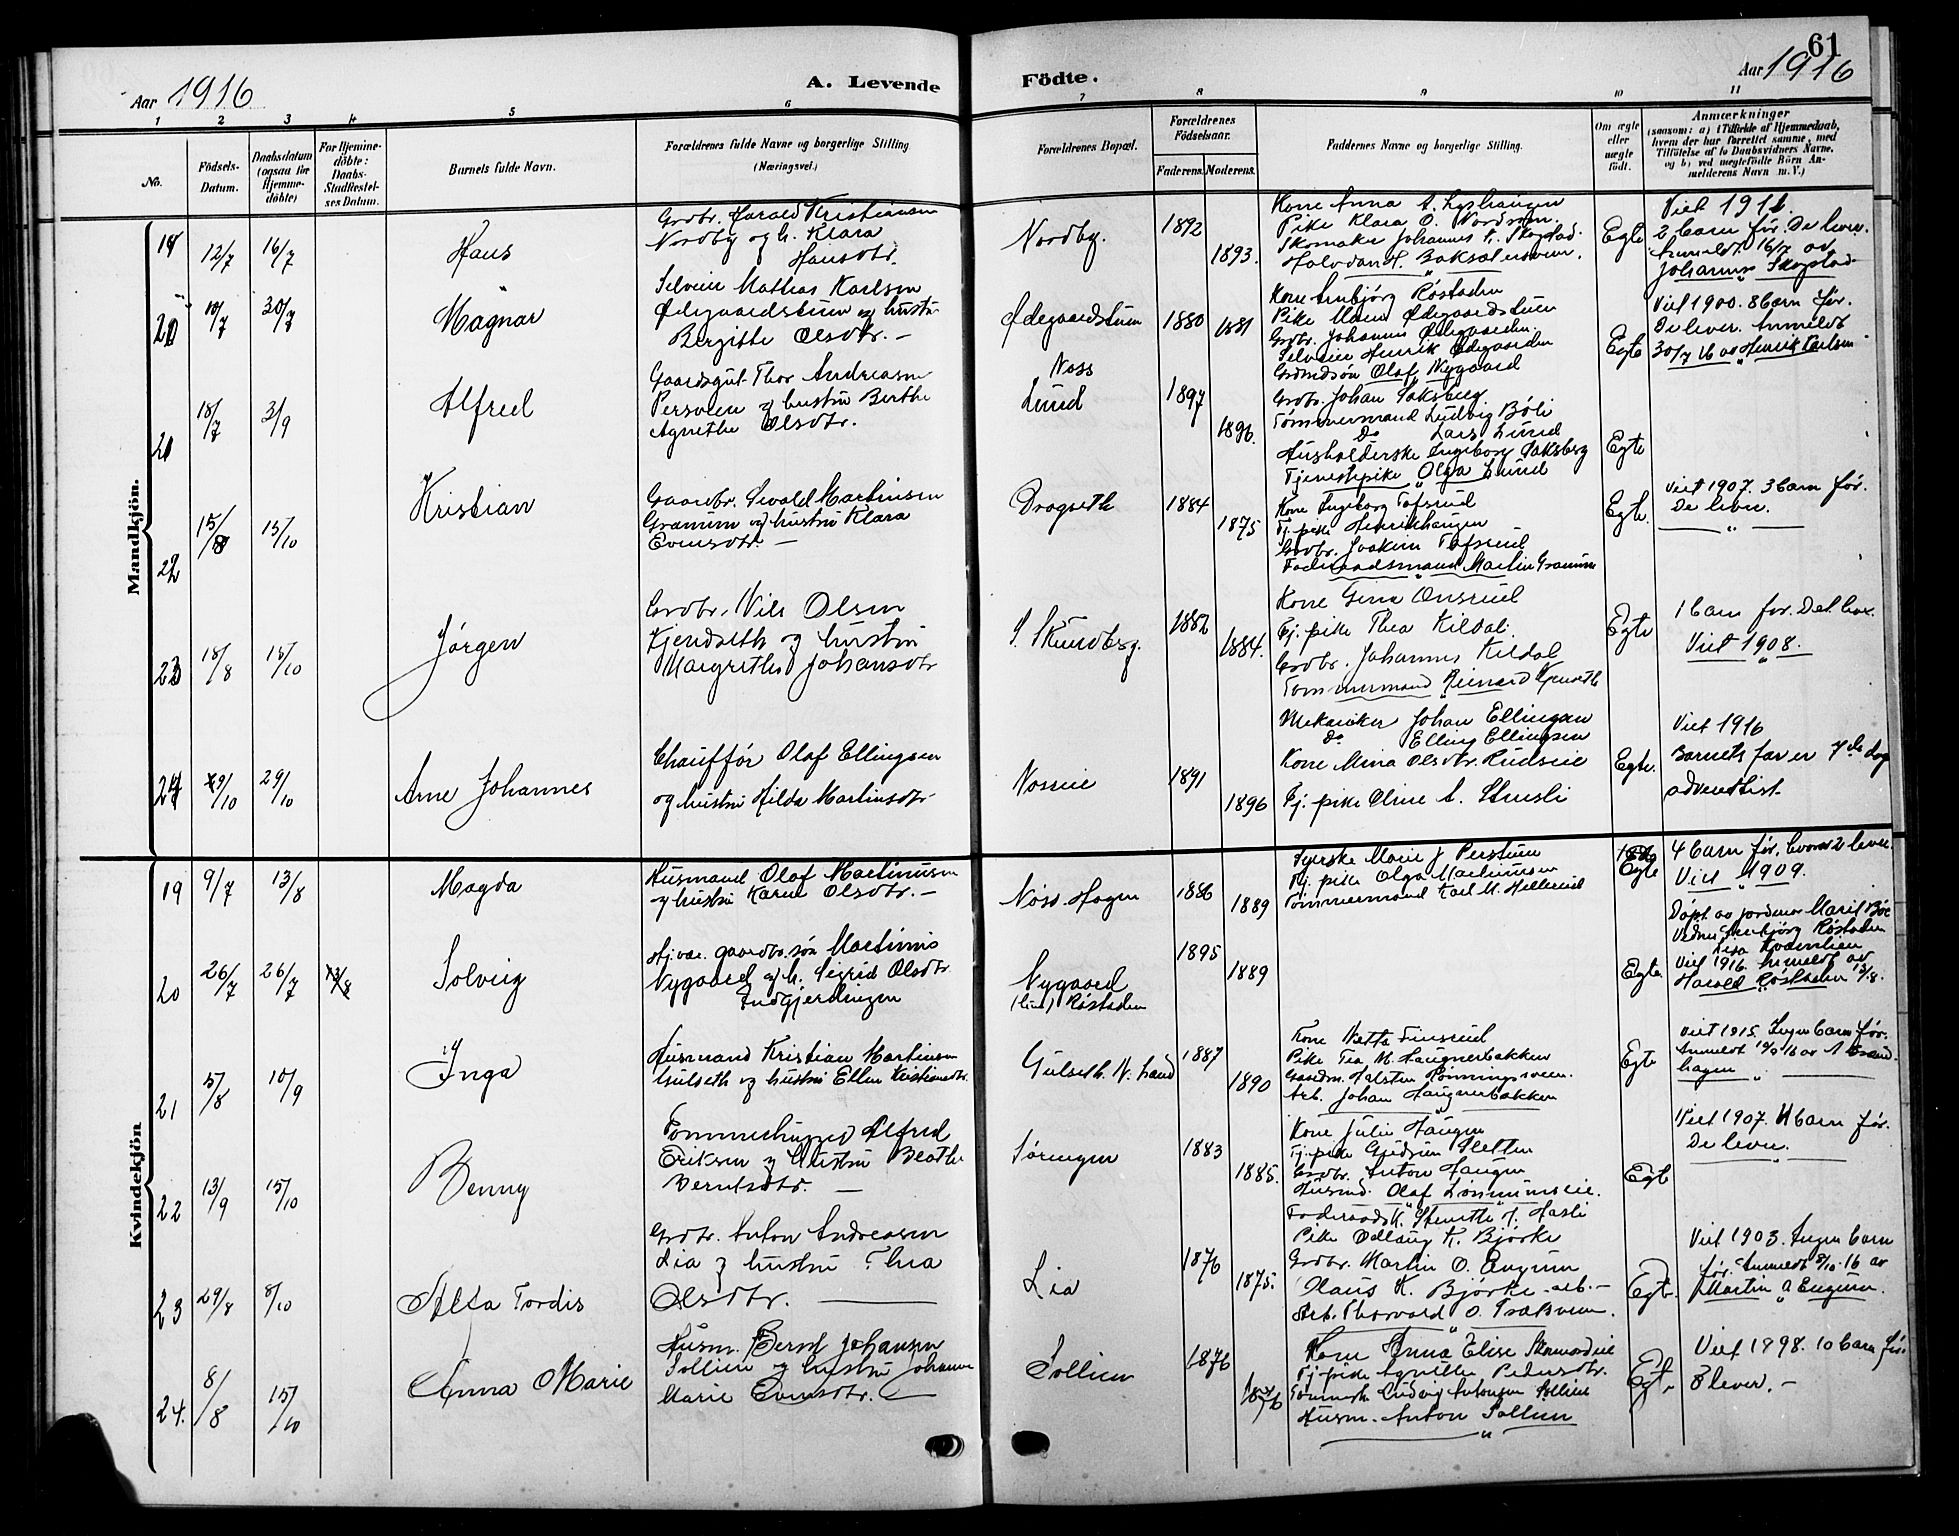 61
Aar 1916
A. Levende Födte.
Aar 1916
1 2 3 4 5 6 7 8 9 10 11
No.
Födsels-Datum.
Daabsdatum (ogsaa for Hjemme-döbte)
For Hjemme-döbte: Daabs-Stadfæstel-ses Datum.
Barnets fulde Navn.
Forældrenes fulde Navne og borgerlige Stilling (Næringsvei.)
Forældrenes Bopæl.
Forældrenes Födselsaar.
Faderens. Moderens.
Faddernes Navne og borgerlige Stilling.
Om ægte eller uægte födt.
Anmærkninger
(saasom: a) i Tilfælde af Hjemmedaab,
hvem der har forrettet samme, med
Tilföielse af to Daabsvidners Navne.
og b) ved uægtefödte Börn An-
melderens Navn m. V.)
Mandkjön.
12/7 16/7 Hans
Grdbr. Harald Kristiansen
Nordby og h. Klara
Hansdtr.
Nordby. 1892 1893.
Kone Anna
Pike Klara O.
Skomaker Johannes Skogstad
Halvdan
Egte
Viet 1911.
2 barn før. De lever.
Anmeldt 16/7 av
Johannes Skogstad
30/7 Magnar
Selveier Mathias Karlsen
Ødegaardstuen og hustru
Bergitte Olsdtr. —
Ødegaardstuen 1880 1881
Kone Røstaden
Pike Ødegaardstuen
Grdbr. Johannes Ødegaarden
Selveier Henrik Ødegaarden
Grdmdsøn Olaf Nygaard
Egte
Viet 1900. 8 barn før.
De lever. Anmeldt
30/7 16 av Henrik Karlsen
18/7 3/9 Alfred
Gaardsgut Thor Andreasen
og hustru Berthe
Agnethe Olsdtr.
Lund 1897 1896.
Grdbr. Johan Saksberg
Tømmermand Ludvig Bøli
Do Lars Lund
Husholderske Ingeborg Saksberg
Tjenestepike Olga Lund
Egte
22 15/8 15/10 Kristian
Gaardbr. Sevald Martinsen
Granum og hustru Klara
Evensdtr. —
Dragseth 1884 1875
Kone Ingeborg Tofsrud
Tj. pike Henrikhaugen
Grdbr. Joakim Tofsrud
Foderaadsmand Martin Granum
Egte.
Viet 1907. 3 barn før.
De lever.
23 18/8 15/10 Jørgen
Grdbr. Nils Olsen
Kjendseth og hustru
Margrethe Johansdtr
S. Skundberg. 1882 1884.
Kone Gina Onsrud
Tj. pike Thea Kildal.
Grdbr. Johannes Kildal
Tømmermand Kjendseth
Egte
1 barn før. Det lever.
Viet 1908.
24 29/10 Arne Johannes
Chauffør Olaf Ellingsen
og hustru Hilda Martinsdtr
1891 1896
Mekaniker Johan Ellingsen
do Elling Ellingsen
Kone Mina Olsdtr. Rudseie
Tj. pike Oline A. Strusli
Egte.
Viet 1916
Barnets far er 7de dag
adventist
Kvindekjön
19 9/7 13/8 Magda
Husmand Olaf Martinusen
og hustru Karen Olsdtr. —
1886 1889
Syerske Marie J. Perstuen
Tj. pike Olga Martinusen
Tømmermand Karl M.
Egte
4 barn før, hvorav 2 lever.
Viet 1909.
20 26/7 26/7 13/8 Solveig
Hj.vær. gaardbr.søn Martinus
Nygaard og h. Sigrid Olsdtr.
Indgjerdingen
Nygaard
Røstaden
1895 1889
Egte
Døpt av jordmor Marit Bøe
Røstaden
Viet 1916. Anmeldt av
Harald Røstaden 13/8.
21 5/8 10/9 Inga
Husmand Kristian Martinsen
Gulseth og hustru Ellen Kristiansdtr.
Gulseth. N. Land 1887 1890
Kone
Pike Tea M. Haugnerbakken
Gaardm. Halsten Rønningsveen.
Arb. Johan Haugnerbakken
Egte
Viet 1915. Ingen barn før.
22 13/9 15/10 Benny
Tømmerhugger Alfred
Eriksen og hustru Beathe
Berntsdtr. —
Søringen 1883 1885.
Kone Julie Haugen
Tj. pike Gudrun Sletten
Grdbr. Anton Haugen
Husmd. Olaf
Egte
Viet 1907. 4 barn før.
De lever.
23 29/8 8/10 Alda Tordis
Grdbr. Anton Andreasen
Lia og hustru Thea
Olsdtr. —
Lia 1876 1875.
Foderaadsk. J. Hasli
Pike Odlaug K. Bjørke
Grdbr. Martin O. Engum
Olaus K. Bjørke arb. —
Arb. Thorvald O.
Egte.
Viet 1903. Ingen barn
før. Anmeldt 8/10. 16 av
Martin O Engum.
24. 8/8 15/10 Anna Marie
Husm. Bernt Johansen
Sollien og hustru Johanne
Marie Evensdtr. —
Sollien 1876 1876
Kone Anna Elise
Tj. pike Agnethe Pedersdtr.
Ludvig Antonsen Sollien
Husm. Anton Sollien
Egte
Viet 1898. 10 barn før
8 lever. —